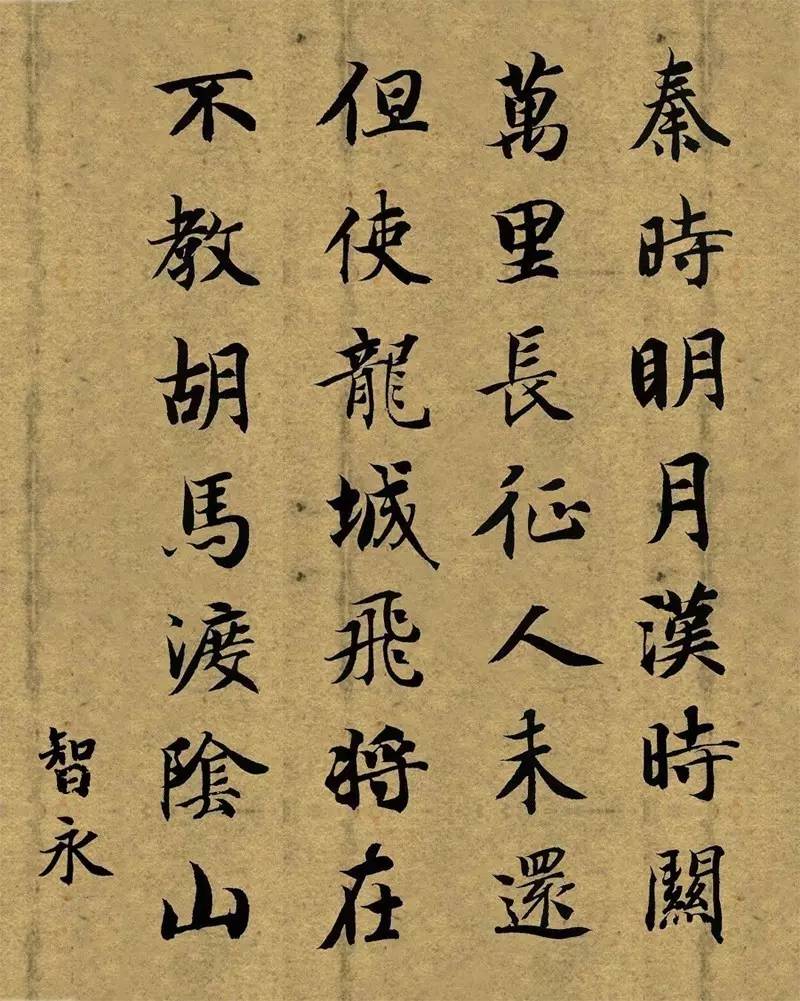 秦時明月漢時關
萬里長征人未還
但使龍城飛將在
不教胡馬渡陰山
智永